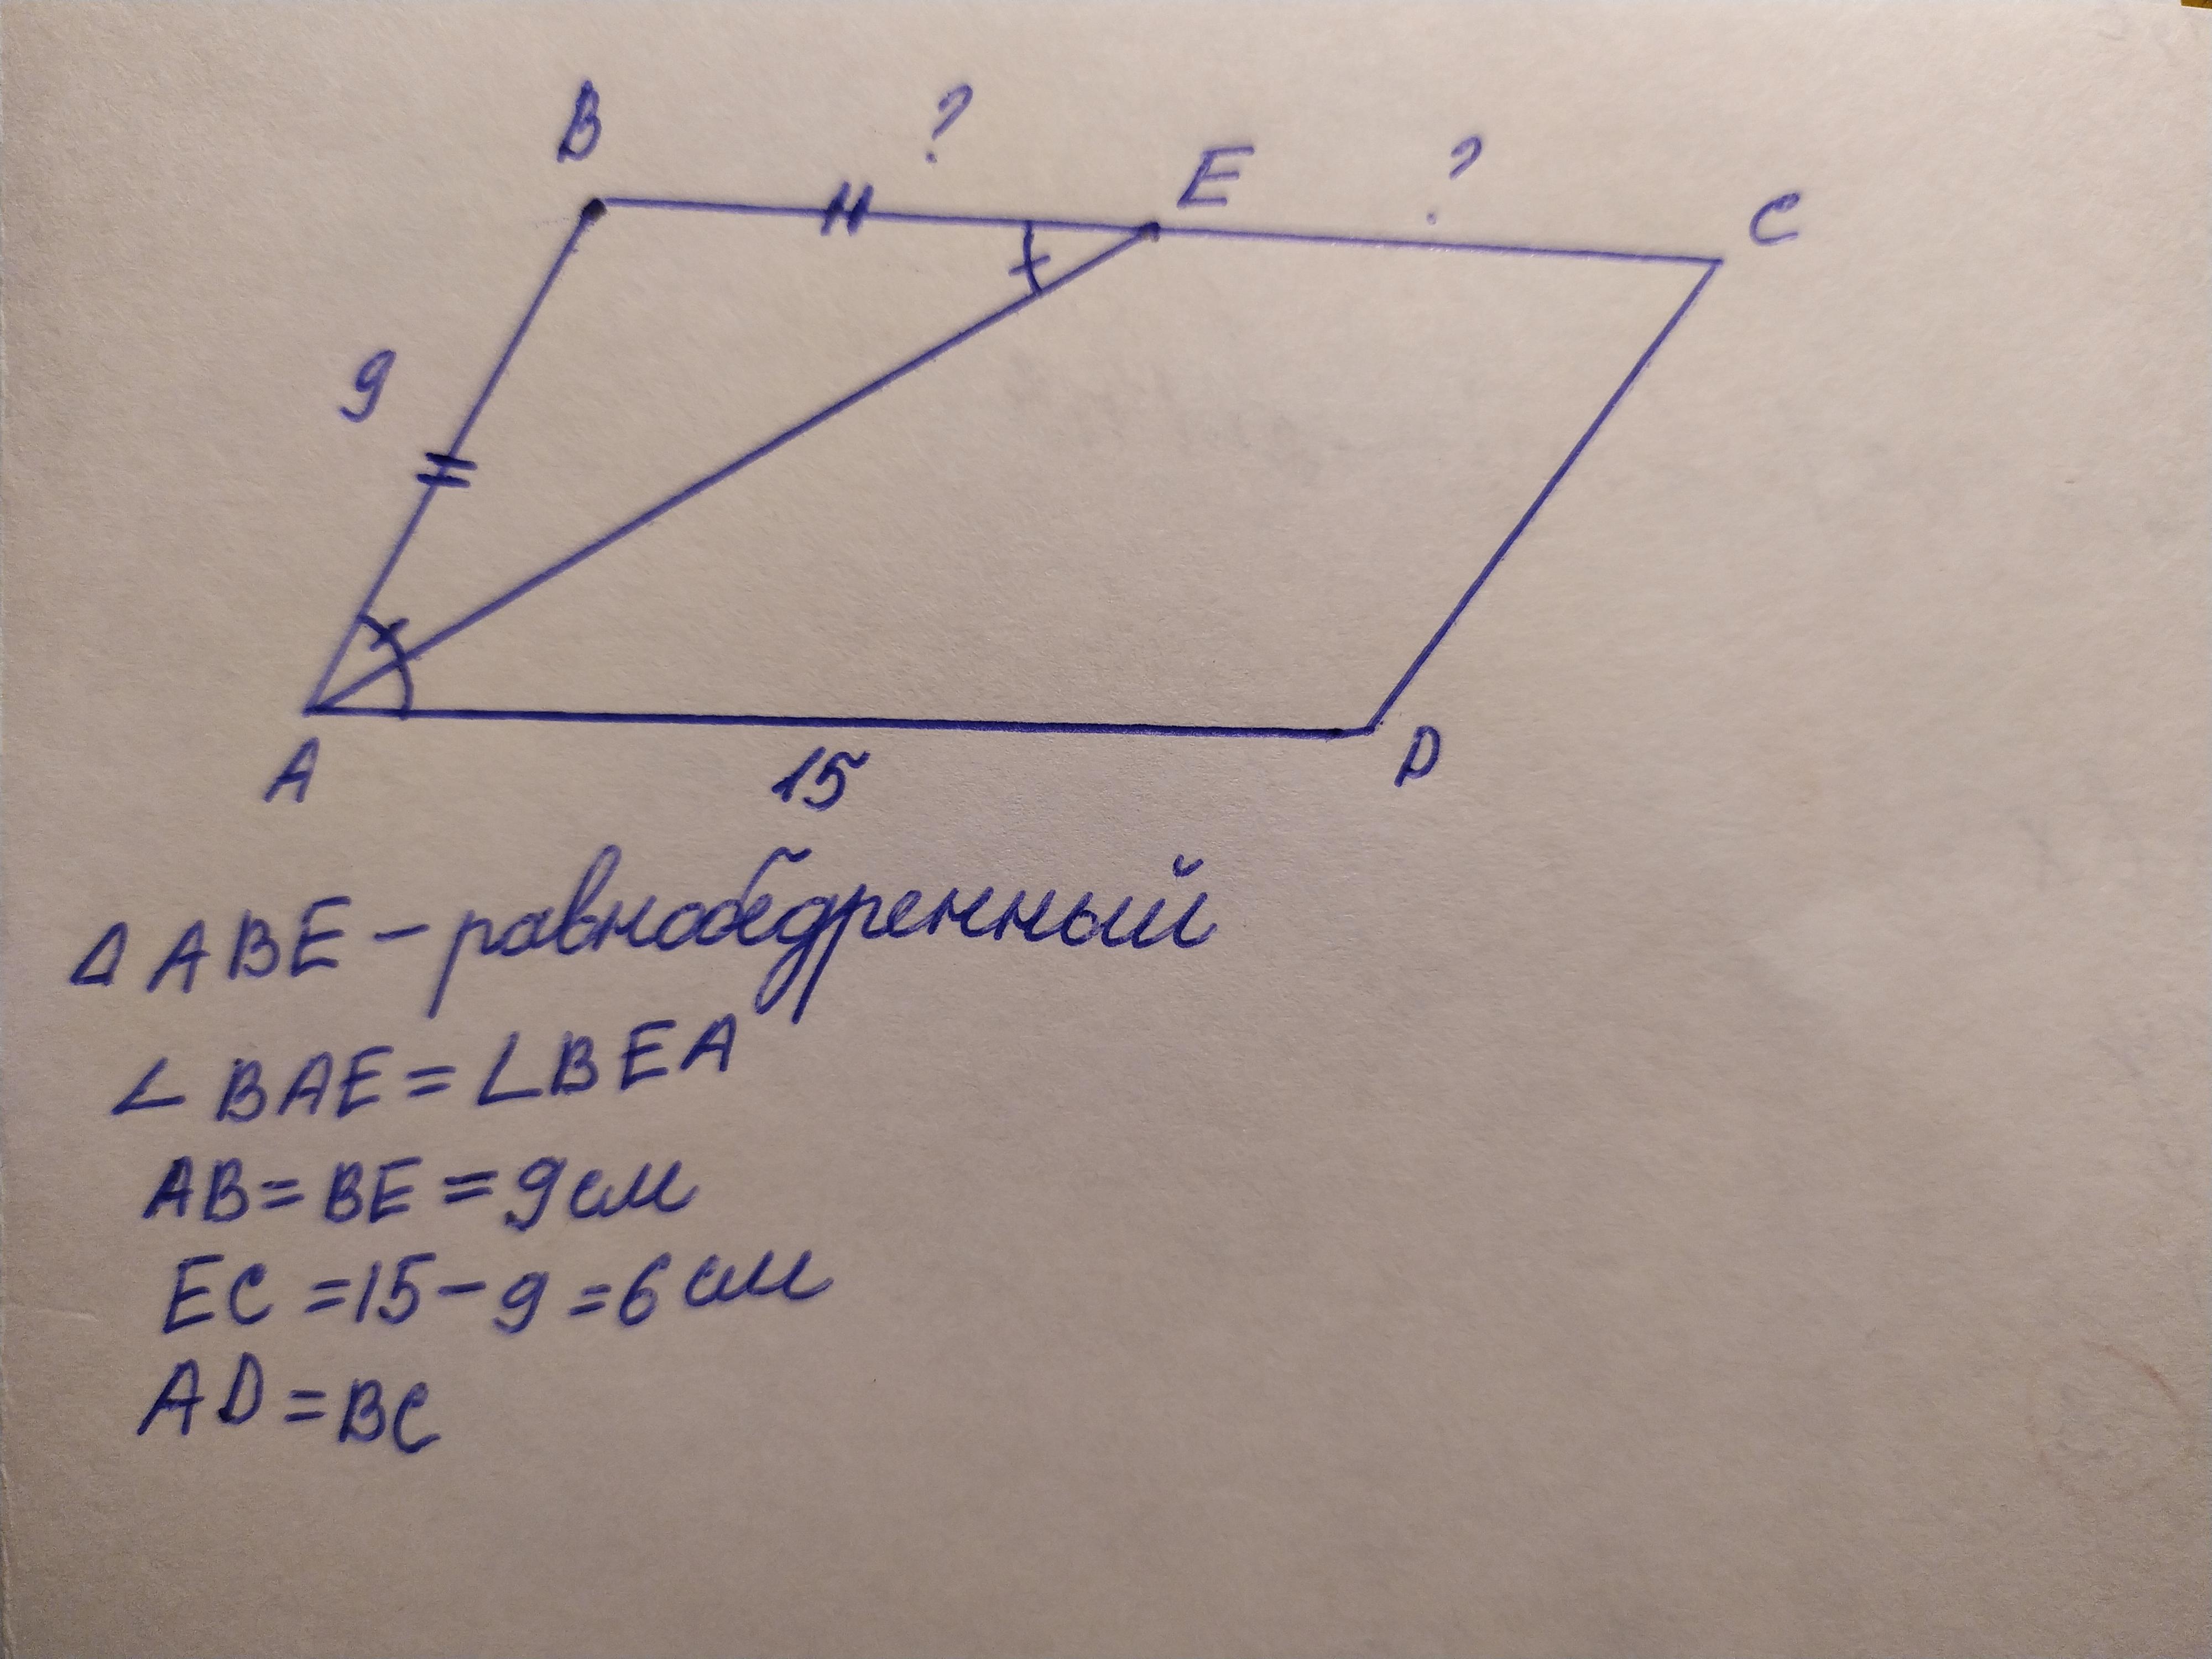 B ? E ? C
9
A 15 D
△ ABE – равнобедренный
∠ BAE = ∠ BEA
AB = BE = 9 см
EC = 15 – 9 = 6 см
AD = BC